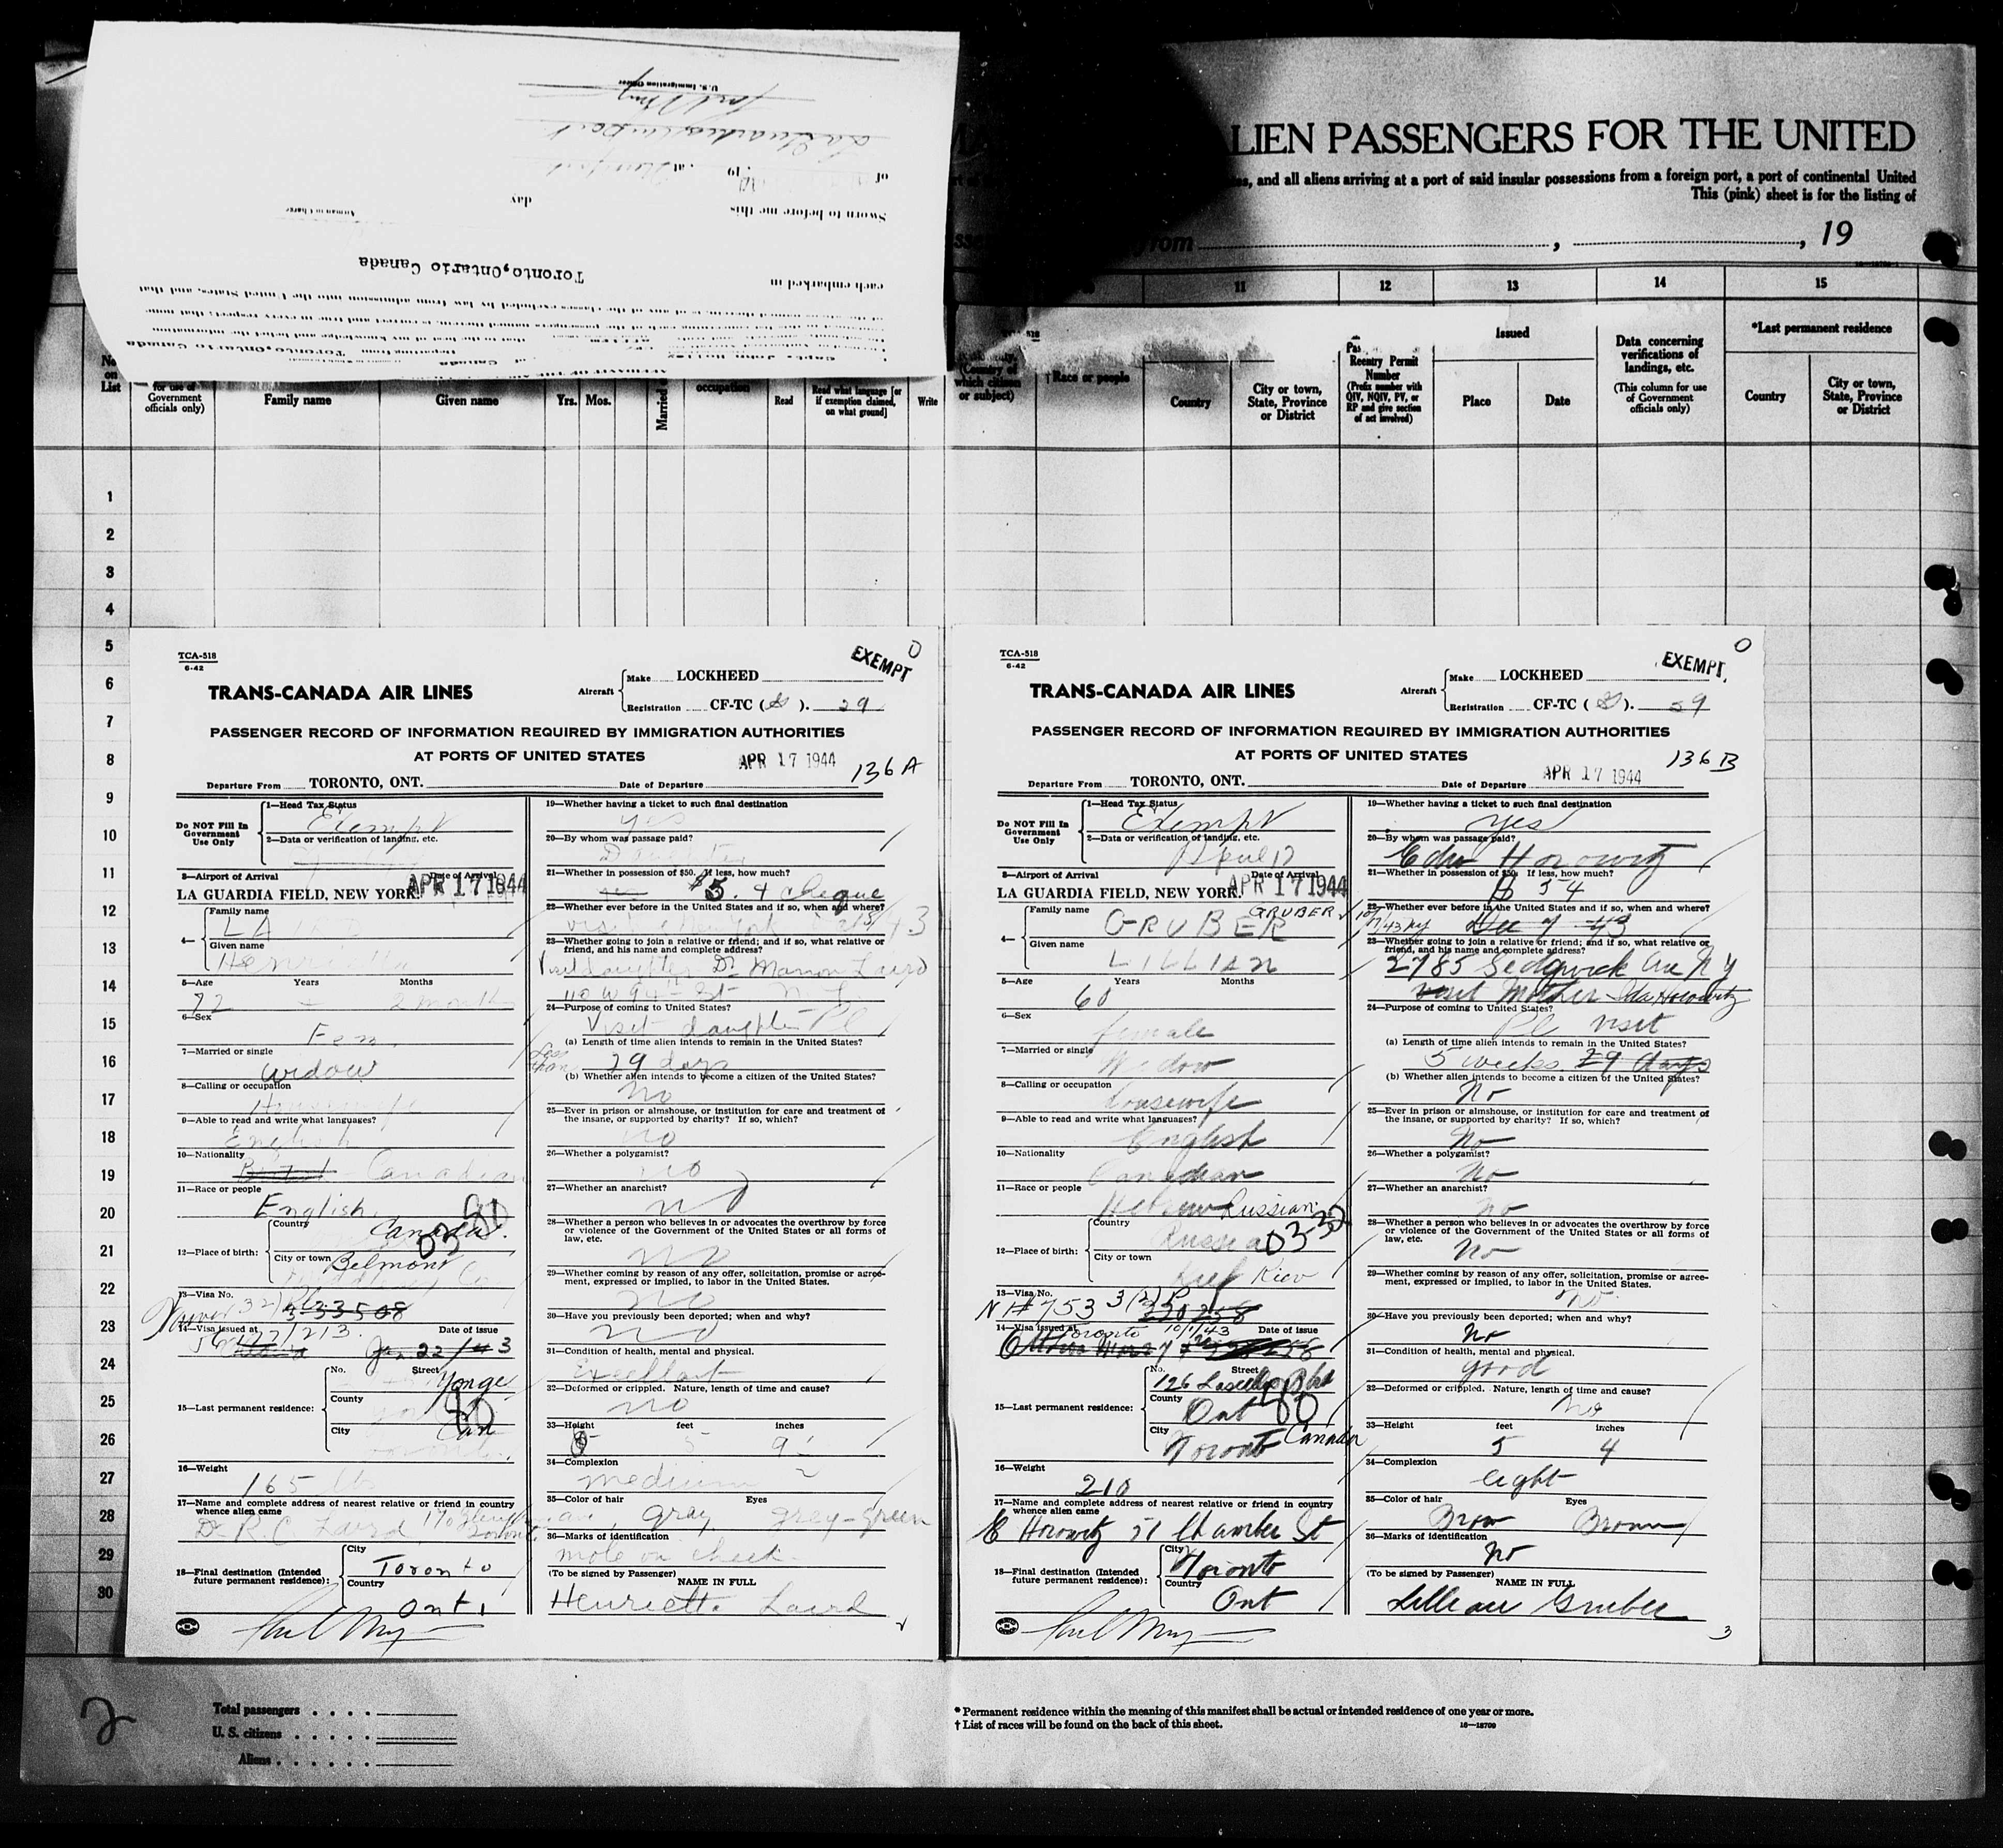 U.S. Immigration Officer
La Guardia Airport
of 19 , at
Sworn to before me this day
Airman in Charge
each embarked in Toronto,Ontario Canada
Toronto,Ontario Canada
LIEN PASSENGERS FOR THE UNITED
and all aliens arriving at a port of said insular possessions from a foreign port, a port of continental United
This (pink) sheet is for the listing of
from , , 19
11 12 13 14 15
No. on List
for use of Government officials only)
Family name
Given name
Yrs. Mos.
Married
occupation
Read
Read what language [or if exemption claimed, on what ground]
Write
(Country of which citizen or subject)
†Race or people
Country
City or town, State, Province or District
Reentry Permit Number
(Prefix number with QIV, NQIV, PV, or RP and give section of act involved)
Issued
Place
Date
Data concerning verifications of landings, etc.
(This column for use of Government officials only)
*Last permanent residence
Country
City or town, State, Province or District
1
2
3
4
5
6
7
8
9
10
11
12
13
14
15
16
17
18
19
20
21
22
23
24
25
26
27
28
29
30
TCA-518
6-42
EXEMPT
TRANS-CANADA AIR LINES
Aircraft
Make LOCKHEED
Registration CF-TC ( ). 29
PASSENGER RECORD OF INFORMATION REQUIRED BY IMMIGRATION AUTHORITIES
AT PORTS OF UNITED STATES
APR 17 1944
136 A
Departure From TORONTO, ONT. Date of Departure
Do NOT Fill In Government Use Only
1—Head Tax Status
Exempt
2—Data or verification of landing, etc.
3—Airport of Arrival Date of Arrival
LA GUARDIA FIELD, NEW YORK. APR 17 1944
4—
Family name
LA
Given name
Henrietta
5—Age Years Months
72 2 months
6—Sex
Fem.
7—Married or single
widow
8—Calling or occupation
Housewife
9—Able to read and write what languages?
English
10—Nationality
Canadian
11—Race or people
English
12—Place of birth:
Country
Canada.
City or town
Belmont
13—Visa No.
333508
14—Visa issued at Date of issue
Jan 22 / 43
15—Last permanent residence:
No. Street
Yonge
County
City
Can
16—Weight
165
17—Name and complete address of nearest relative or friend in country
whence alien came
Dr R.C. Laird
18—Final destination (Intended
future permanent residence):
City
Toronto
Country
Ont.
19—Whether having a ticket to such final destination
yes
20—By whom was passage paid?
Daughter
21—Whether in possession of $50. If less, how much?
$5. + cheque
22—Whether ever before in the United States and if so, when and where?
23—Whether going to join a relative or friend; and if so, what relative or
friend, and his name and complete address?
Visit daughter Dr Marion Laird
110 W 94th St N.Y.
24—Purpose of coming to United States?
Visit daughter Pl
(a) Length of time alien intends to remain in the United States?
Less than 29 days
(b) Whether alien intends to become a citizen of the United States?
no
25—Ever in prison or almshouse, or institution for care and treatment of
the insane, or supported by charity? If so, which?
no
26—Whether a polygamist?
no
27—Whether an anarchist?
no
28—Whether a person who believes in or advocates the overthrow by force
or violence of the Government of the United States or all forms of
law, etc.
no
29—Whether coming by reason of any offer, solicitation, promise or agree-
ment, expressed or implied, to labor in the United States.
no
30—Have you previously been deported; when and why?
no
31—Condition of health, mental and physical.
Excellent
32—Deformed or crippled. Nature, length of time and cause?
no
33—Height feet inches
5 9
34—Complexion
medium
35—Color of hair Eyes
gray grey-green
36—Marks of identification
mole on cheek
(To be signed by Passenger) NAME IN FULL
Henrietta Laird
TCA-518
6-42
EXEMPT.
TRANS-CANADA AIR LINES
Aircraft
Make LOCKHEED
Registration CF-TC ( ). 59
PASSENGER RECORD OF INFORMATION REQUIRED BY IMMIGRATION AUTHORITIES
AT PORTS OF UNITED STATES
136 B
APR 17 1944
Departure From TORONTO, ONT. Date of Departure
Do NOT Fill In Government Use Only
1—Head Tax Status
Exempt
2—Data or verification of landing, etc.
April 17
3—Airport of Arrival Date of Arrival
LA GUARDIA FIELD, NEW YORK. APR 17 1944
4—
Family name
GRUBER GRUBER
Given name
LILLIAN
5—Age Years Months
60
6—Sex
female
7—Married or single
Widow
8—Calling or occupation
housewife
9—Able to read and write what languages?
English
10—Nationality
Canadian
11—Race or people
Hebrew Russian
12—Place of birth:
Country
Russia 03-32
City or town
Kief Kiev
13—Visa No.
N I # 753 3(2) P
14—Visa issued at Date of issue
Toronto 10/1/43
15—Last permanent residence:
No. Street
126
County
Ont
City
Toronto Canada
16—Weight
210
17—Name and complete address of nearest relative or friend in country
whence alien came
E Horowitz 51 Chamber St
18—Final destination (Intended
future permanent residence):
City
Toronto
Country
Ont
19—Whether having a ticket to such final destination
yes
20—By whom was passage paid?
Edw Horowitz
21—Whether in possession of $50. If less, how much?
$ 54
22—Whether ever before in the United States and if so, when and where?
Dec 7 43
23—Whether going to join a relative or friend; and if so, what relative or
friend, and his name and complete address?
2785 Sedgwick Ave N Y
visit Mother Ida Horowitz
24—Purpose of coming to United States?
Pl visit
(a) Length of time alien intends to remain in the United States?
5 weeks 29 days
(b) Whether alien intends to become a citizen of the United States?
No
25—Ever in prison or almshouse, or institution for care and treatment of
the insane, or supported by charity? If so, which?
No
26—Whether a polygamist?
No
27—Whether an anarchist?
no
28—Whether a person who believes in or advocates the overthrow by force
or violence of the Government of the United States or all forms of
law, etc.
No
29—Whether coming by reason of any offer, solicitation, promise or agree-
ment, expressed or implied, to labor in the United States.
no
30—Have you previously been deported; when and why?
No
31—Condition of health, mental and physical.
good
32—Deformed or crippled. Nature, length of time and cause?
No
33—Height feet inches
5 4
34—Complexion
light
35—Color of hair Eyes
Brow Brown
36—Marks of identification
No
(To be signed by Passenger) NAME IN FULL
Lillian Gruber
3
2
Total passengers
U. S. citizens
Aliens
* Permanent residence within the meaning of this manifest shall be actual or intended residence of one year or more.
† List of races will be found on the back of this sheet.
16—18709